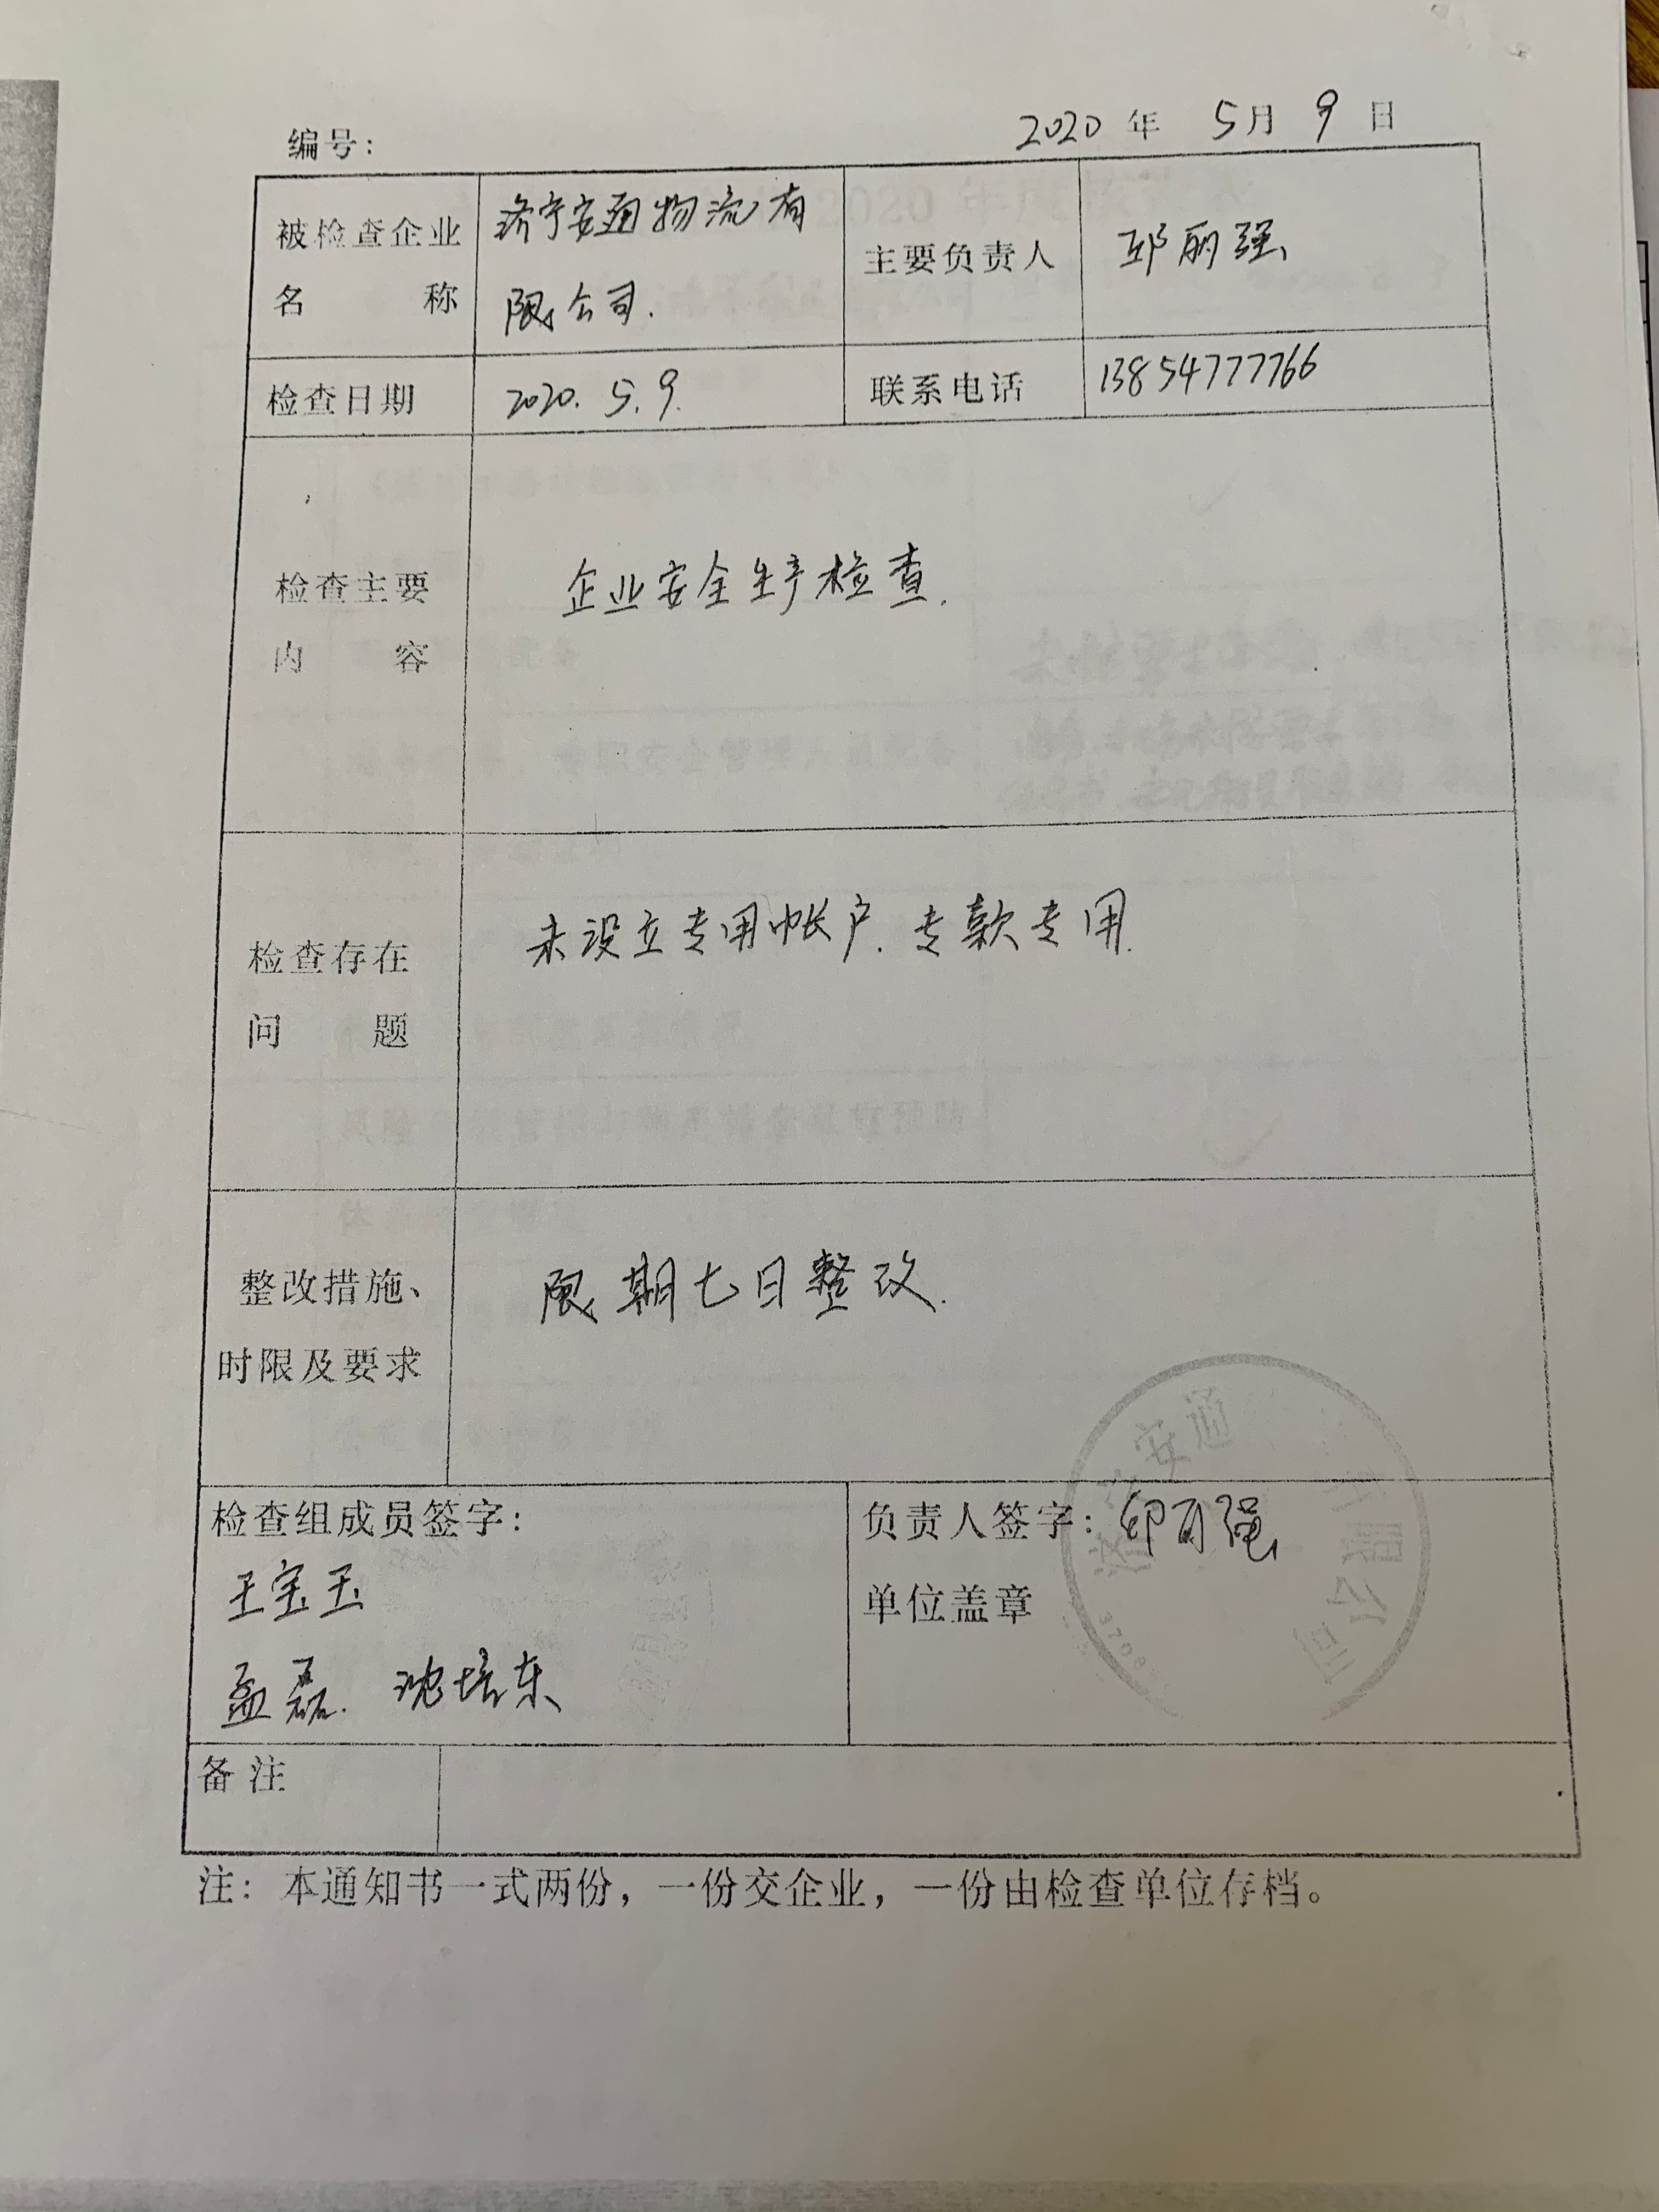 编号：
2020 年 5月 9 日
被检查企业
名 称
济宁安通物流有
限公司.
主要负责人
邱丽强
检查日期
2020. 5. 9.
联系电话
13854777766
检查主要
内 容
企业安全生产检查.
检查存在
问 题
未设立专用帐户. 专款专用.
整改措施、
时限及要求
限期七日整改.
检查组成员签字：
王宝玉
孟磊. 沈培东
负责人签字：
单位盖章
安通
限公司
备注
注：本通知书一式两份，一份交企业，一份由检查单位存档。